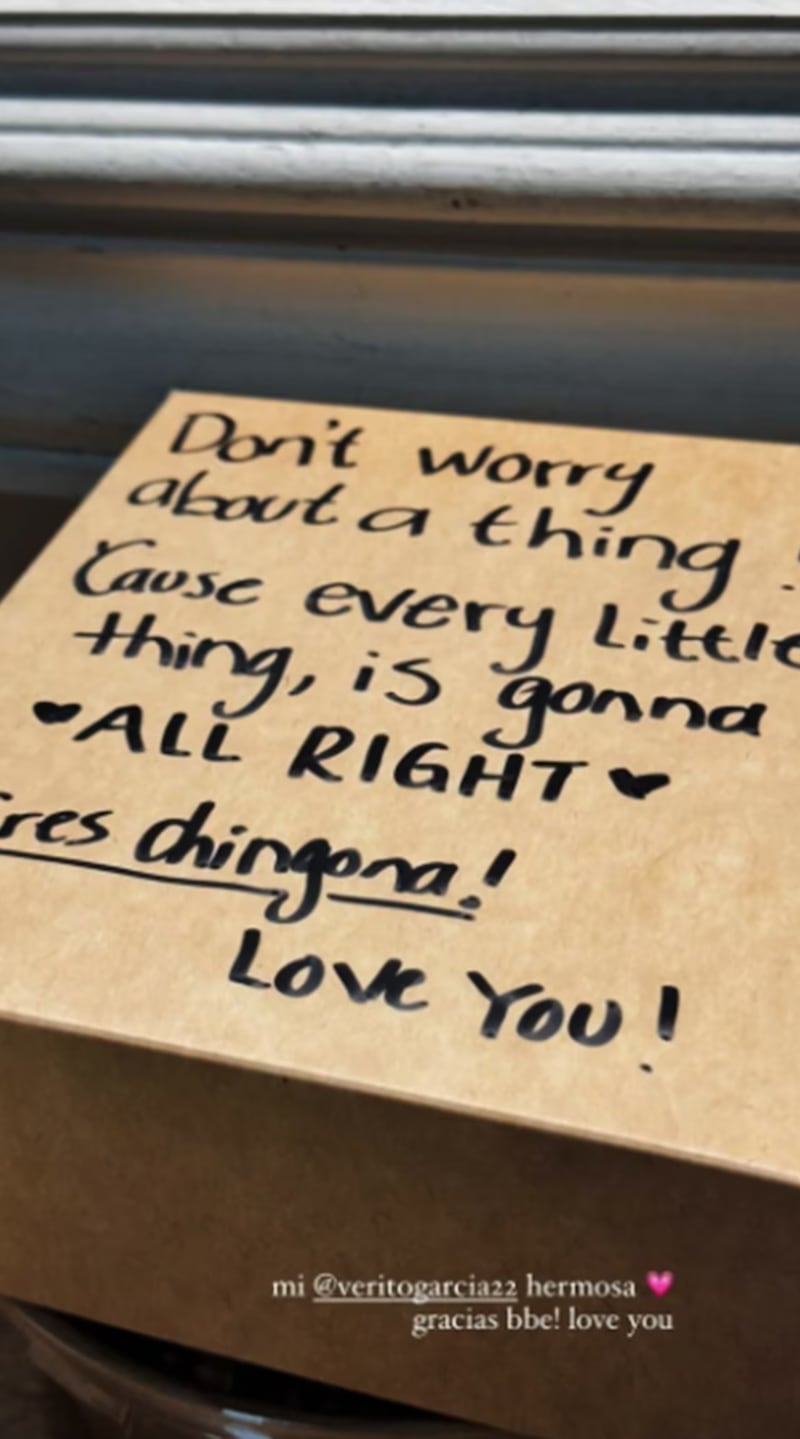 Don't worry
about a thing !
'Cause every Little
thing, is gonna
ALL RIGHT
Eres chingona!
Love You!
mi @veritogarcia22 hermosa 💗
gracias bbe! love you